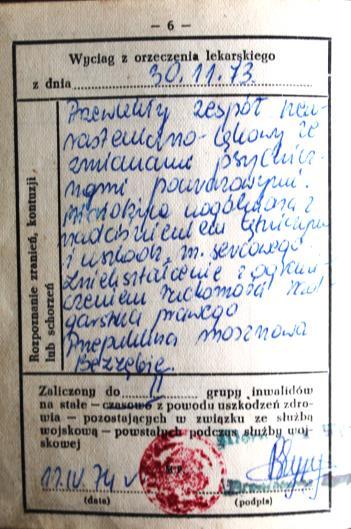 — 6 —
Wyciąg z orzeczenia lekarskiego
z dnia 30.11.73.
Rozpoznanie zranień, kontuzji
lub schorzeń
Przewlekły zespół neu-
rasteniczno-lękowy ze
zmianami psychicz-
nymi pourazowymi.
Miażdżyca uogólniona z
nadciśnieniem tętniczym
i uszkodz. m. sercowego.
Zniekształcenie z ograni-
czeniem ruchomości nad-
garstka prawego
Przepuklina mosznowa
Bezzębie.
Zaliczony do II grupy inwalidów
na stałe — czasowo z powodu uszkodzeń zdro-
wia — pozostających w związku ze służbą
wojskową — powstałych podczas służby woj-
skowej
17.IV.74
(data) (podpis)